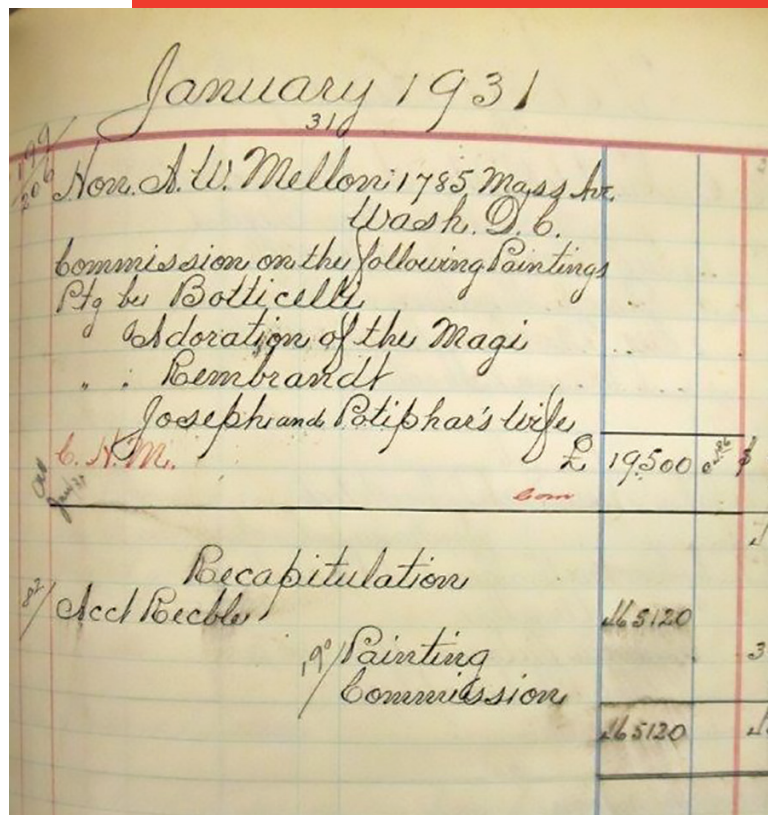 January 1931
31
199/
206
Hon. A. W. Mellon 1785 Mass Av.
Wash. D. C.
Commission on the following Paintings
Ptg by Botticelli
Adoration of the Magi
" " Rembrandt
Joseph and Potiphar's Wife
C. H. M. £ 19500 $
Com
Recapitulation
82/ Acct Recble 165120
190/ Painting 3
Commission
165120